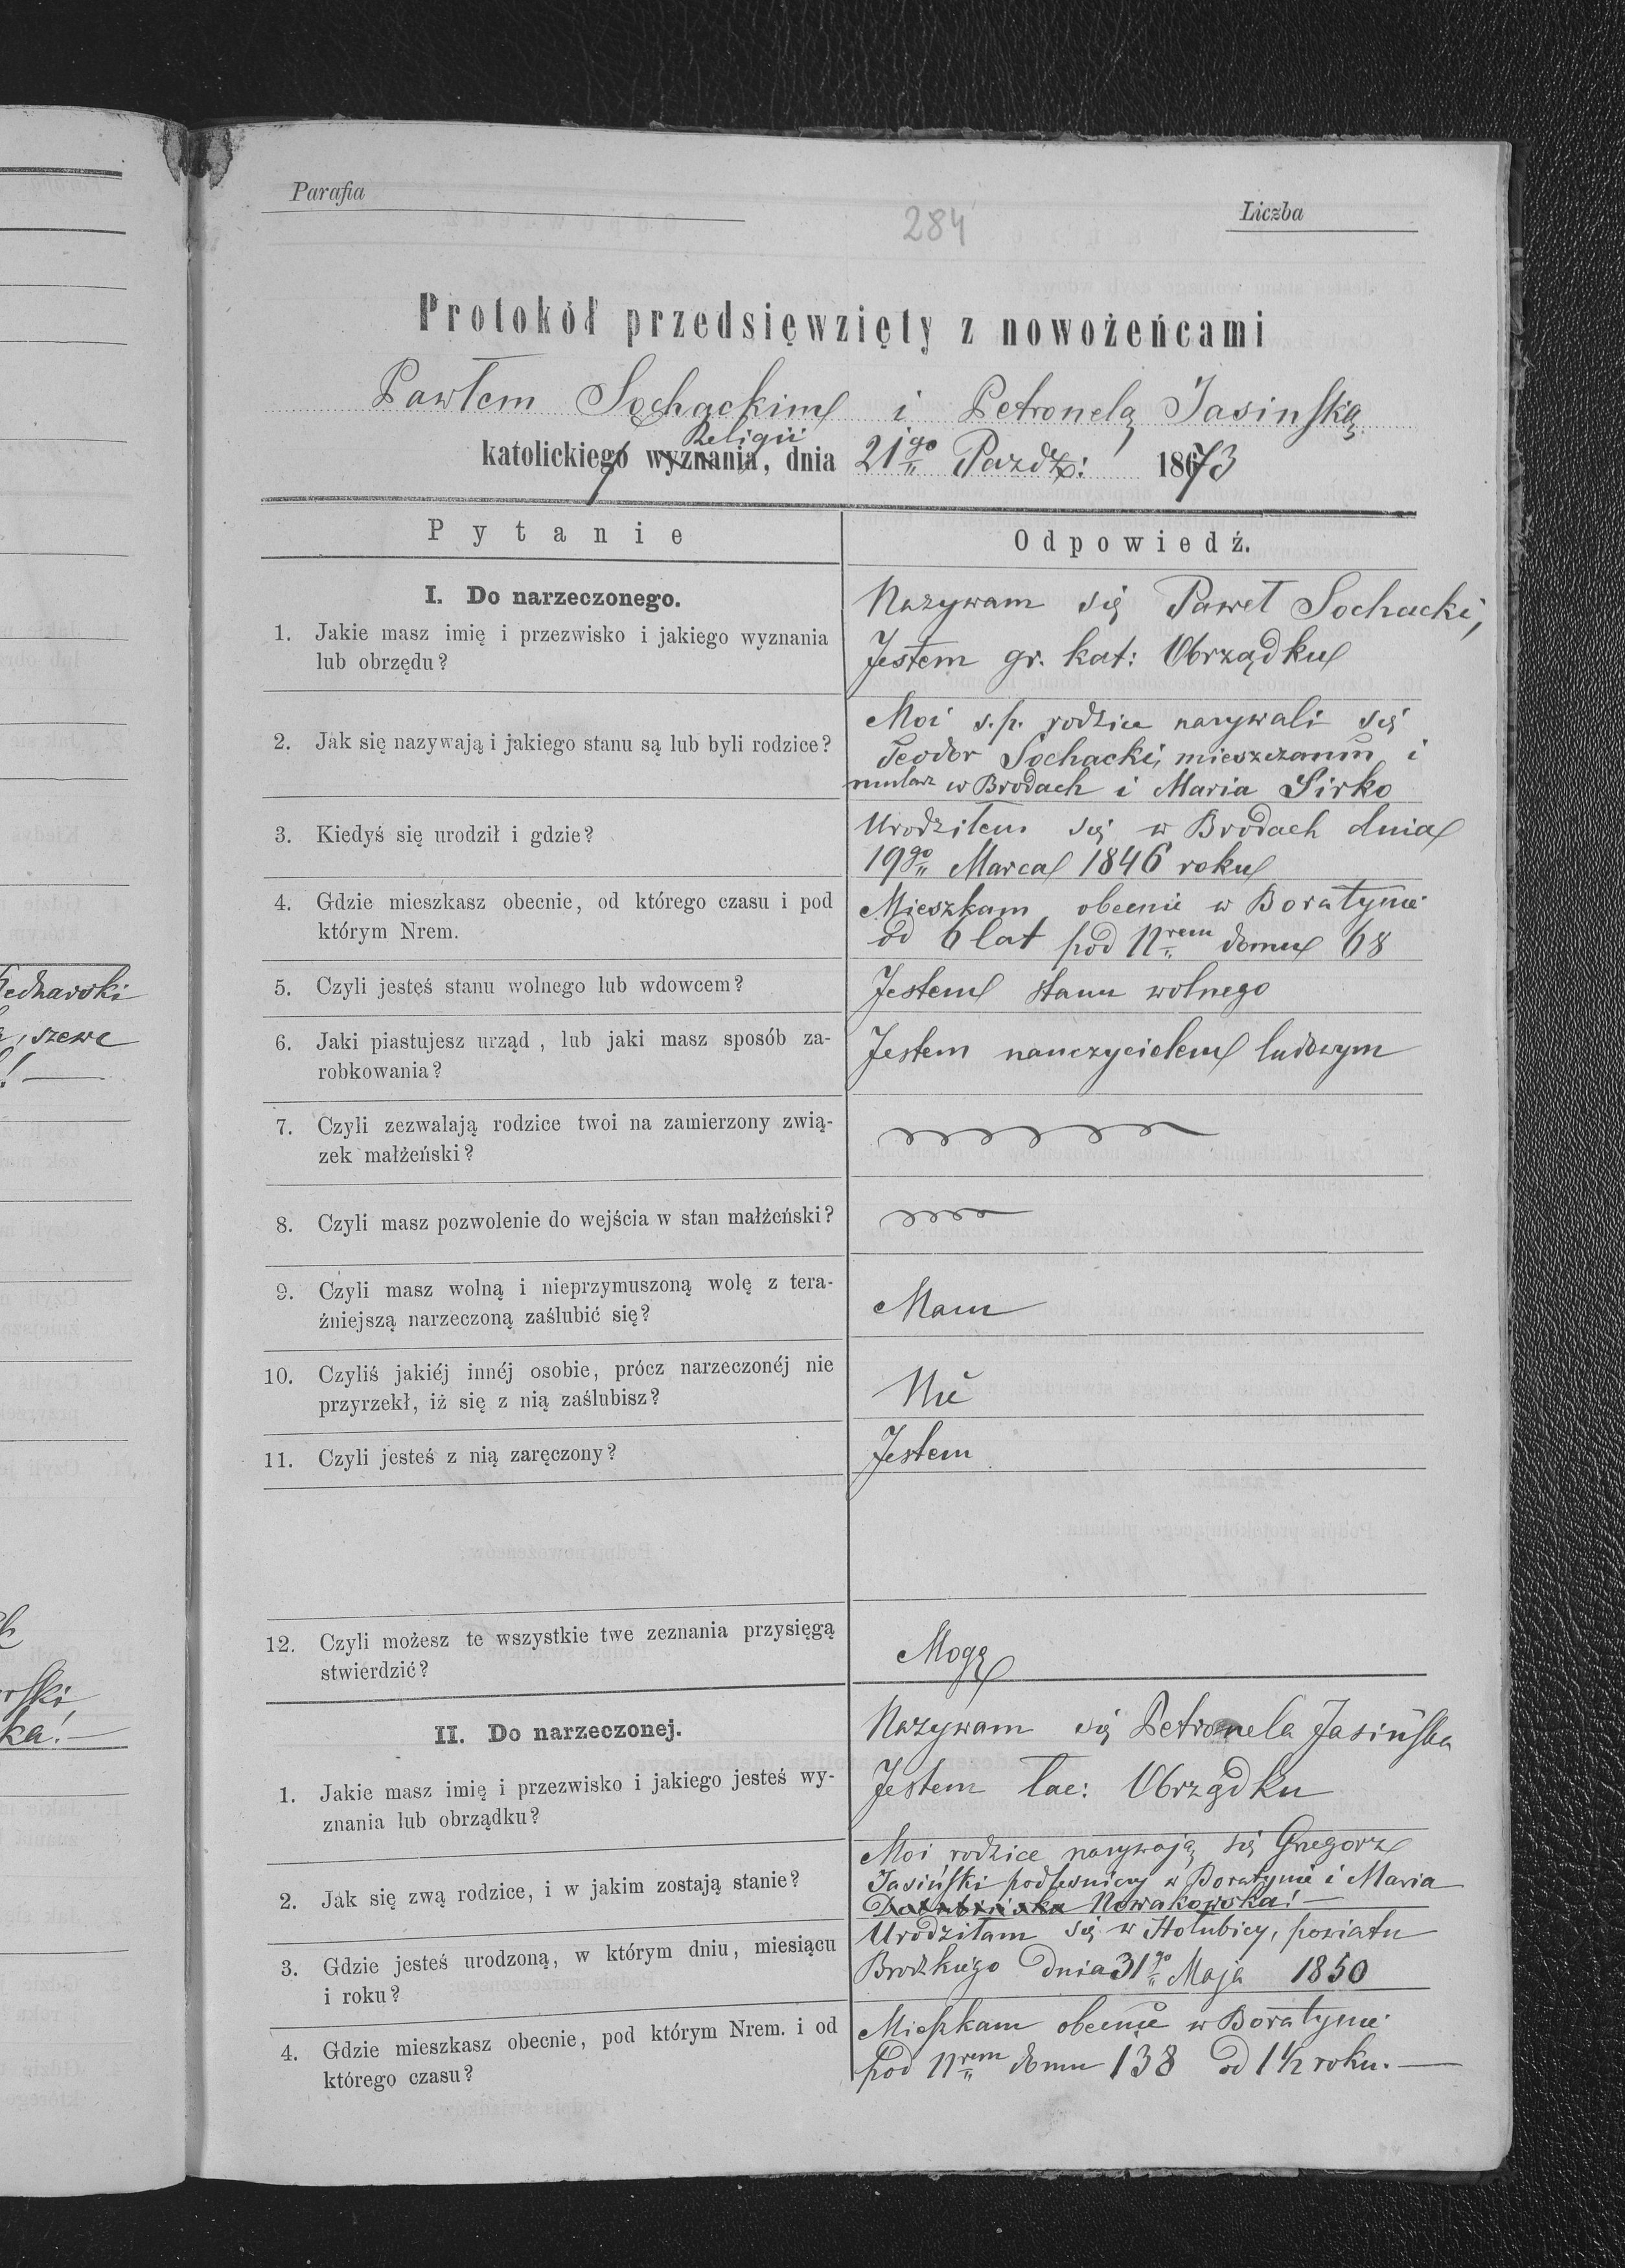 Parafia
Liczba
284
Protokół przedsięwzięty z nowożeńcami
Pawłem Sochackim i Petronelą Jasinską
Religii
katolickiego wyznania, dnia 21go Paźdz: 1873
Pytanie
Odpowiedź.
I. Do narzeczonego.
1. Jakie masz imię i przezwisko i jakiego wyznania
lub obrzędu?
Nazywam się Paweł Sochacki,
Jestem gr. kat: Obrządku
2. Jak się nazywają i jakiego stanu są lub byli rodzice?
Moi s.p. rodzice nazywali się
Teodor Sochacki, mieszczanin i
mularz w Brodach i Maria Sirko
3. Kiedyś się urodził i gdzie?
Urodziłem się w Brodach dnia
19go Marca 1846 roku
4. Gdzie mieszkasz obecnie, od którego czasu i pod
którym Nrem.
Mieszkam obecnie w Boratynie
od 6 lat pod Nrem domu 68
5. Czyli jestęś stanu wolnego lub wdowcem?
Jestem stanu wolnego
6. Jaki piastujesz urząd, lub jaki masz sposób za-
robkowania?
Jestem nauczycielem ludowym
7. Czyli zezwalają rodzice twoi na zamierzony zwią-
zek małżeński?
8. Czyli masz pozwolenie do wejścia w stan małżeński?
9. Czyli masz wolną i nieprzymuszoną wolę z tera-
źniejszą narzeczoną zaślubić się?
Mam
10. Czyliś jakiéj innéj osobie, prócz narzeczonéj nie
przyrzekł, iż się z nią zaślubisz?
Nie
11. Czyli jesteś z nią zaręczony?
Jestem
12. Czyli możesz te wszystkie twe zeznania przysięgą
stwierdzić?
Mogę
II. Do narzeczonej.
1. Jakie masz imię i przezwisko i jakiego jesteś wy-
znania lub obrządku?
Nazywam się Petronela Jasińska
Jestem łac: Obrządku
2. Jak się zwą rodzice, i w jakim zostają stanie?
Moi rodzice nazywają się Gregorz
Jasiński podleśniczy w Boratynie i Maria
Nowakowska!
3. Gdzie jesteś urodzoną, w którym dniu, miesiącu
i roku?
Urodziłam się w Hołubicy, powiatu
Brodzkiego dnia 31go Maja 1850
4. Gdzie mieszkasz obecnie, pod którym Nrem. i od
którego czasu?
Mieszkam obecnie w Boratynie
pod Nrem domu 138 od 1 1/2 roku.